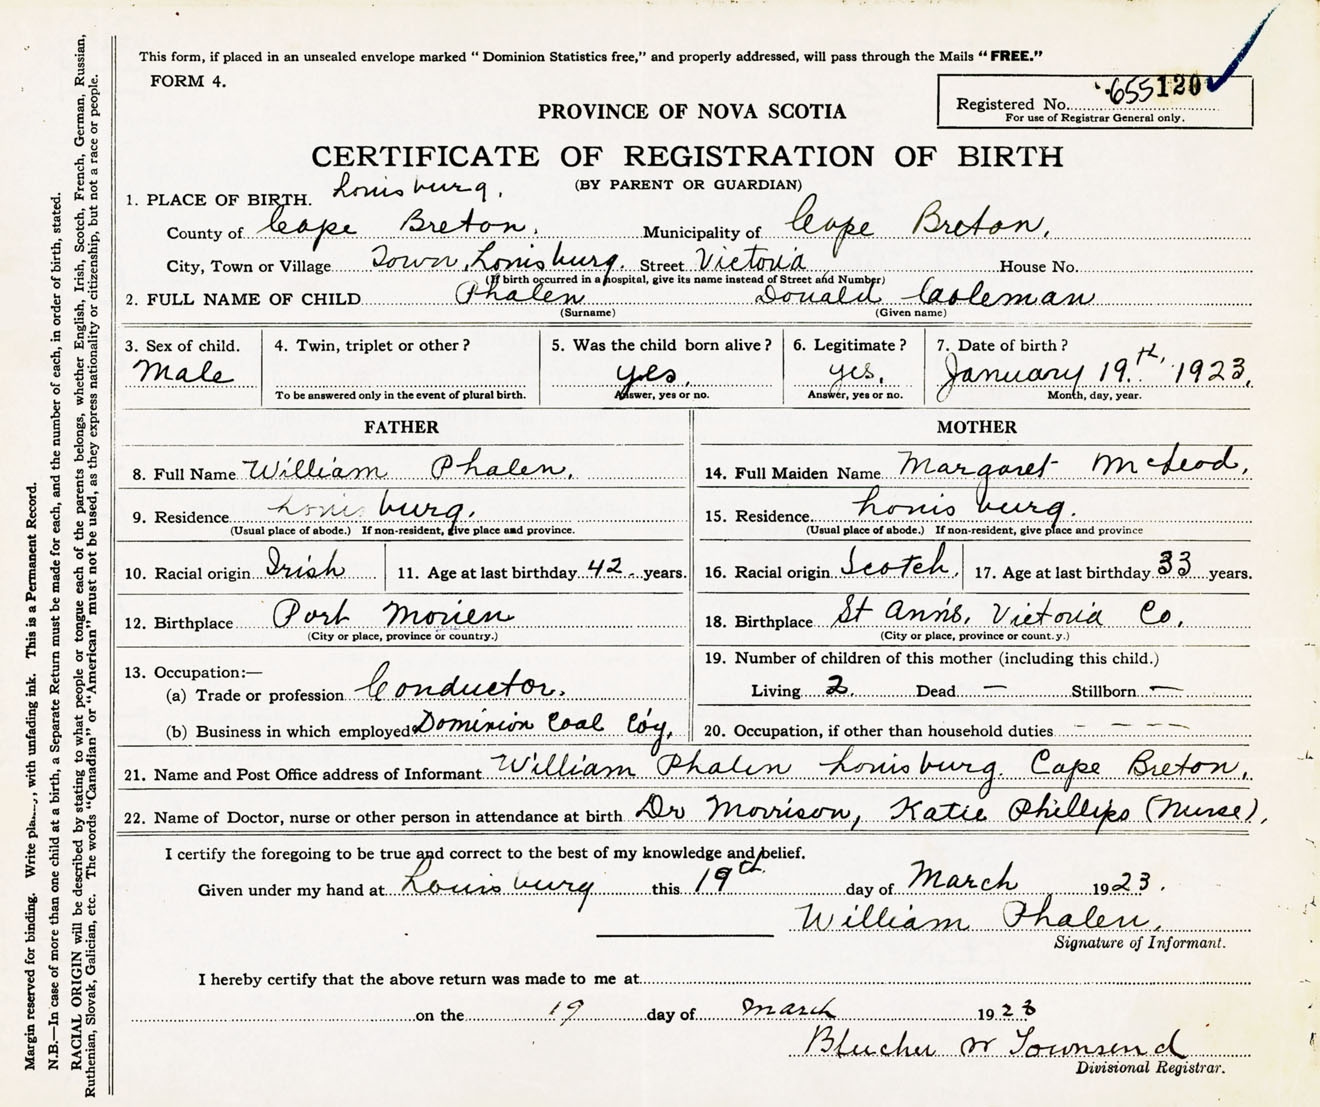 This form, if placed in an unsealed envelope marked “ Dominion Statistics free,” and properly addressed, will pass through the Mails “ FREE.”
FORM 4.
Registered No. 655120
For use of Registrar General only.
PROVINCE OF NOVA SCOTIA
CERTIFICATE OF REGISTRATION OF BIRTH
(BY PARENT OR GUARDIAN)
1. PLACE OF BIRTH. Louisburg.
County of Cape Breton. Municipality of Cape Breton.
City, Town or Village Town, Louisburg. Street Victoria House No.
(If birth occurred in a hospital, give its name instead of Street and Number)
2. FULL NAME OF CHILD Phalen Donald Coleman
(Surname) (Given name)
3. Sex of child. 4. Twin, triplet or other ? 5. Was the child born alive ? 6. Legitimate ? 7. Date of birth ?
Male yes. yes. January 19th, 1923.
To be answered only in the event of plural birth. Answer, yes or no. Answer, yes or no. Month, day, year.
FATHER MOTHER
8. Full Name William Phalen. 14. Full Maiden Name Margaret McLeod.
9. Residence Louisburg. 15. Residence Louisburg.
(Usual place of abode.) If non-resident, give place and province. (Usual place of abode.) If non-resident, give place and province
10. Racial origin Irish 11. Age at last birthday 42 years. 16. Racial origin Scotch. 17. Age at last birthday 33 years.
12. Birthplace Port Morien 18. Birthplace St Ann's, Victoria Co.
(City or place, province or country.) (City or place, province or count.y.)
13. Occupation:— 19. Number of children of this mother (including this child.)
(a) Trade or profession Conductor. Living 2. Dead — Stillborn —
(b) Business in which employed Dominion Coal Coy. 20. Occupation, if other than household duties — — — —
21. Name and Post Office address of Informant William Phalen Louisburg. Cape Breton.
22. Name of Doctor, nurse or other person in attendance at birth Dr Morrison, Katie Phillips (Nurse).
I certify the foregoing to be true and correct to the best of my knowledge and belief.
Given under my hand at Louisburg this 19th day of March 1923.
William Phalen.
Signature of Informant.
I hereby certify that the above return was made to me at
on the 19 day of March 1923
Blucher W Townsend
Divisional Registrar.
Margin reserved for binding. Write with unfading ink. This is a Permanent Record.
N.B.—In case of more than one child at a birth, a Separate Return must be made for each, and the number of each, in order of birth, stated.
RACIAL ORIGIN will be described by stating to what people or tongue each of the parents belongs, whether English, Irish, Scotch, French, German, Russian,
Ruthenian, Slovak, Galician, etc. The words “Canadian” or “American” must not be used, as they express nationality or citizenship, but not a race or people.